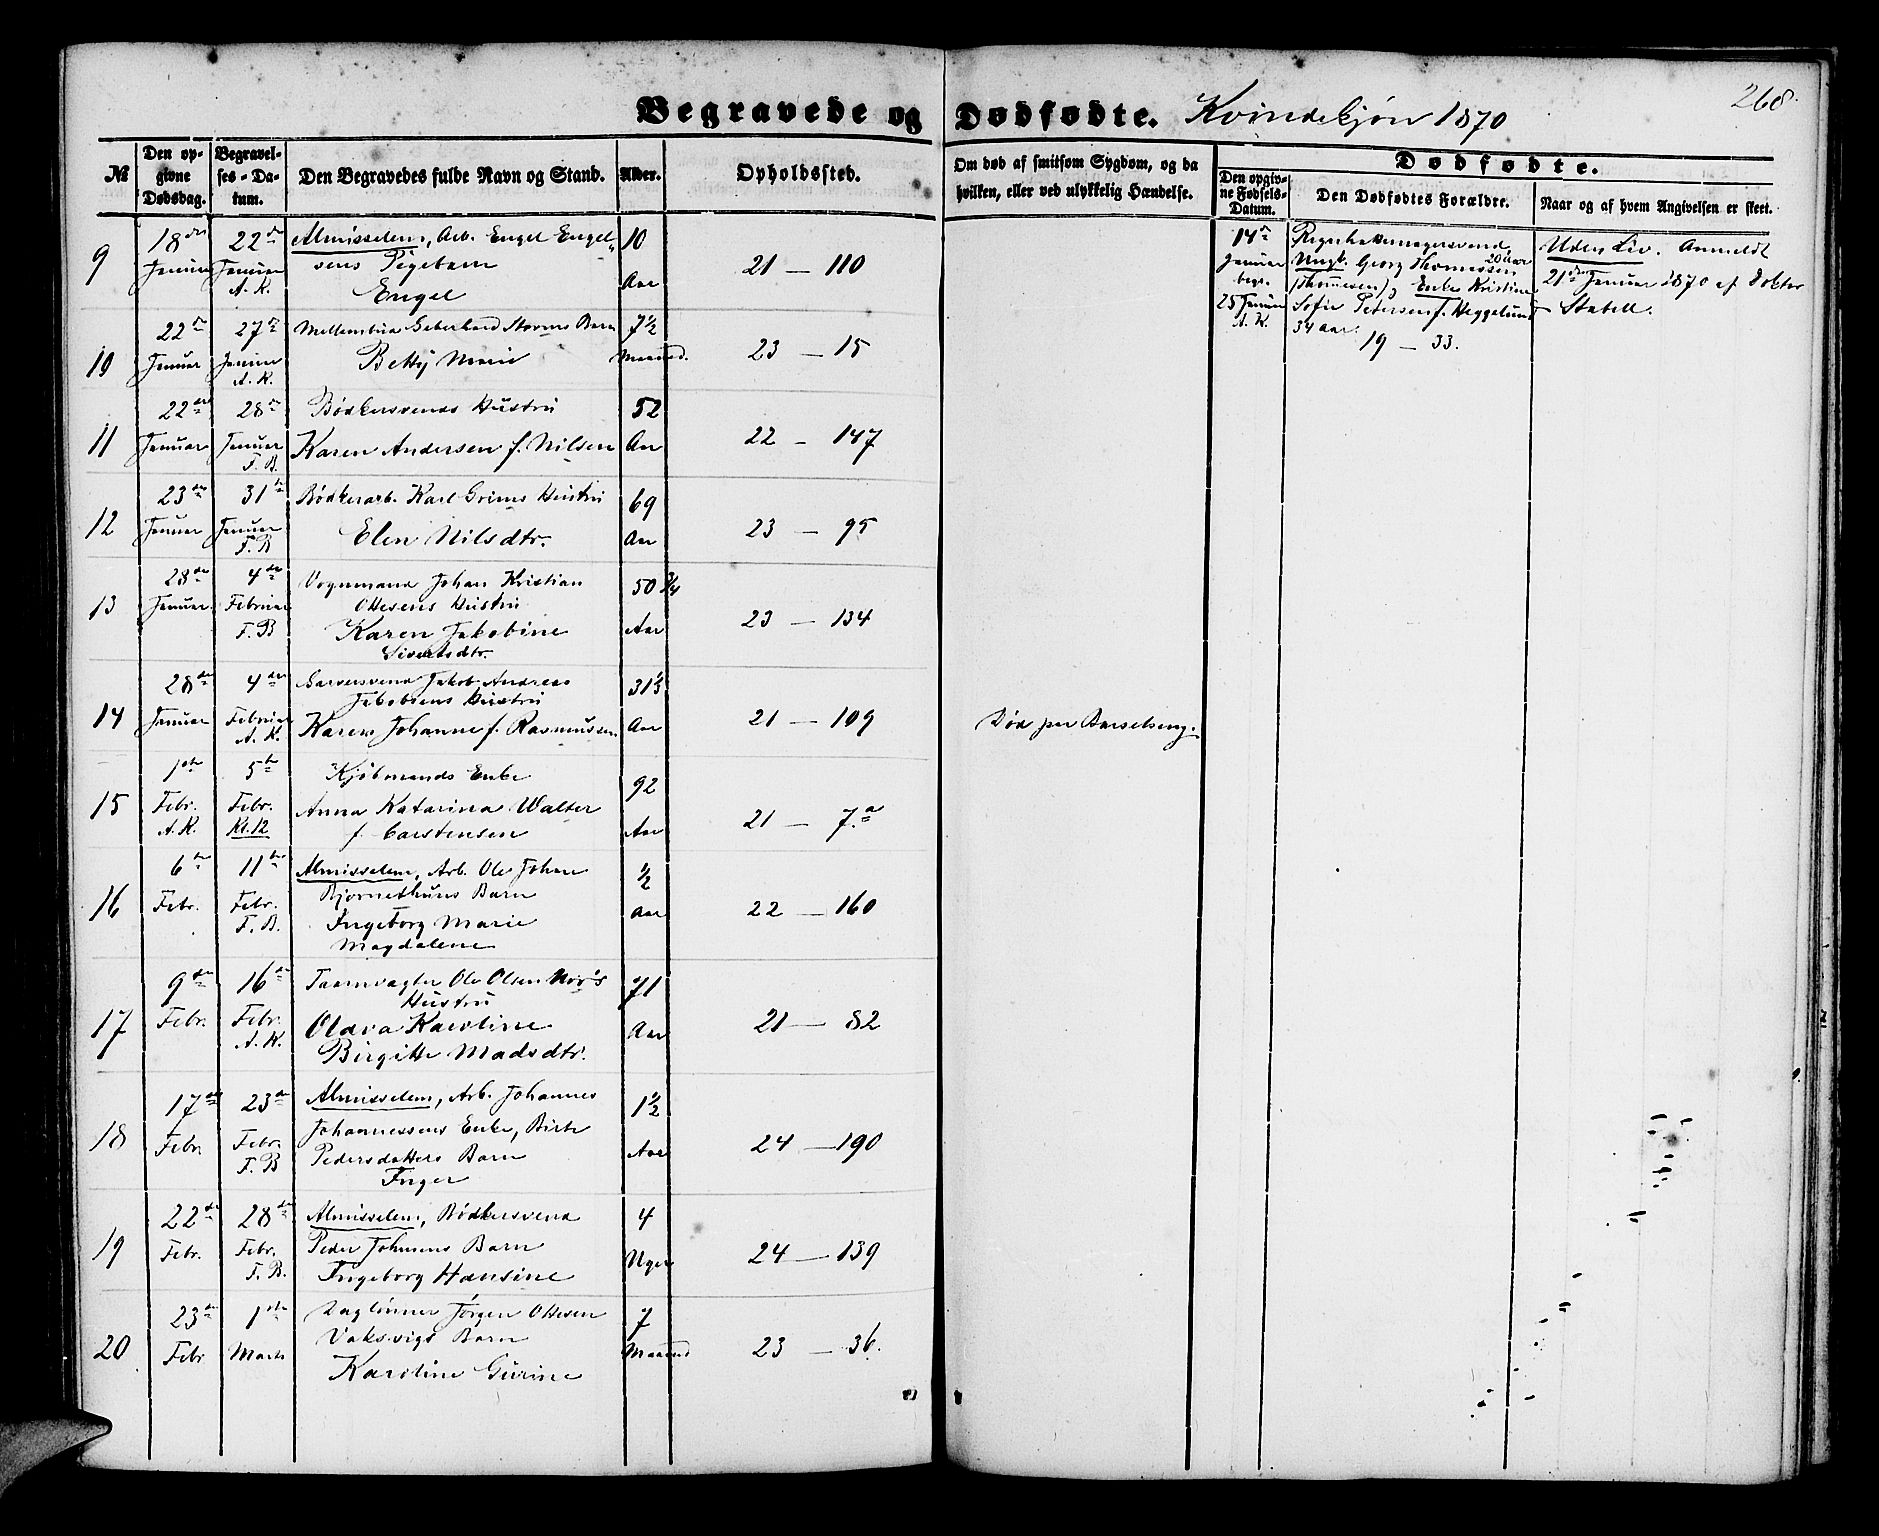 268.
Begravede og Dødfødte. Kvindekjøn 1870
№
Den opgivne Dødsdag.
Begravelses-Datum.
Den Begravedes fulde Navn og Stand.
Alder.
Opholdssted.
Om død af smitsom Sygdom, og da hvilken, eller ved ulykkelig Hændelse.
Dødfødte.
Den opgivne Fødsels-Datum.
Den Dødfødtes Forældre.
Naar og af hvem Angivelsen er skeet.
9
18de Januar
22de Januar
A. K.
Almisselem, Arb. Engel Engel-
sens Pigebarn
Engel
10 Aar
21 — 110
14de Januar
begr.
25 Januar
A. K.
Ungk. Georg Thomassen 20 Aar
(Thomesen), Enke Kristine
Sofie Petersen f. Heggelund
34 Aar.
19 — 33.
Uden Liv. Anmeldt
21de Januar 1870 af Doktor
Stabell.
10
22de Januar
27de Januar
A. K.
Geberhard Storms Barn
Betty Marie
7½ Maaned.
23 — 15
11
22de Januar
28de Januar
F. B.
Bødkersvends Hustru
Karen Andersen f. Nilsen
52 Aar
22 — 147
12
23de Januar
31te Januar
F. B
Bødkerarb. Karl Grims Hustru
Elen Nilsdtr.
69 Aar
23 — 95
13
28de Januar
4de Februar
F. B
Vognmand Johan Kristian
Ottesens Hustru
Karen Jakobine
Sivertsdtr.
50 ¾ Aar
23 — 134
14
28de Januar
4de Februar
A. K.
Garversvend Jakob Andreas
Jakobsens Hustru
Karen Johanne f. Rasmussen
31⅓ Aar
21 — 109
Død paa Barselseng.
15
1ste Febr.
A. K.
5te Febr.
Kl. 12
Kjøbmands Enke
Anna Katarina Walter
f. Carstensen
92 Aar
21 — 7.a
16
6te Febr.
11te Febr.
F. B.
Almisselem, Arb. Ole Johan
Bjørnethuns Barn
Ingeborg Marie
Magdalene
½ Aar
22 — 160
17
9de Febr.
16de Febr.
A. K.
Taarnvagter Ole Olsen Mo's
Hustru
Olava Karoline
Birgitte Madsdtr.
71 Aar
21 — 82
18
17de Febr
23de Febr.
F. B
Almisselem, Arb. Johannes
Johannessens Enke, Birte
Pedersdatters Barn
Inger
1½ Aar
24 — 190
19
22de Febr.
28de Febr.
F. B.
Almisselem, Bødkersvend
Peder Johnsens Barn
Ingeborg Hansine
4 Uger
24 — 139
20
23de Febr
1ste Marts
Daglønner Jørgen Ottesen
Vaksvigs Barn
Karoline Gurine
7 Maaned
23 — 36.